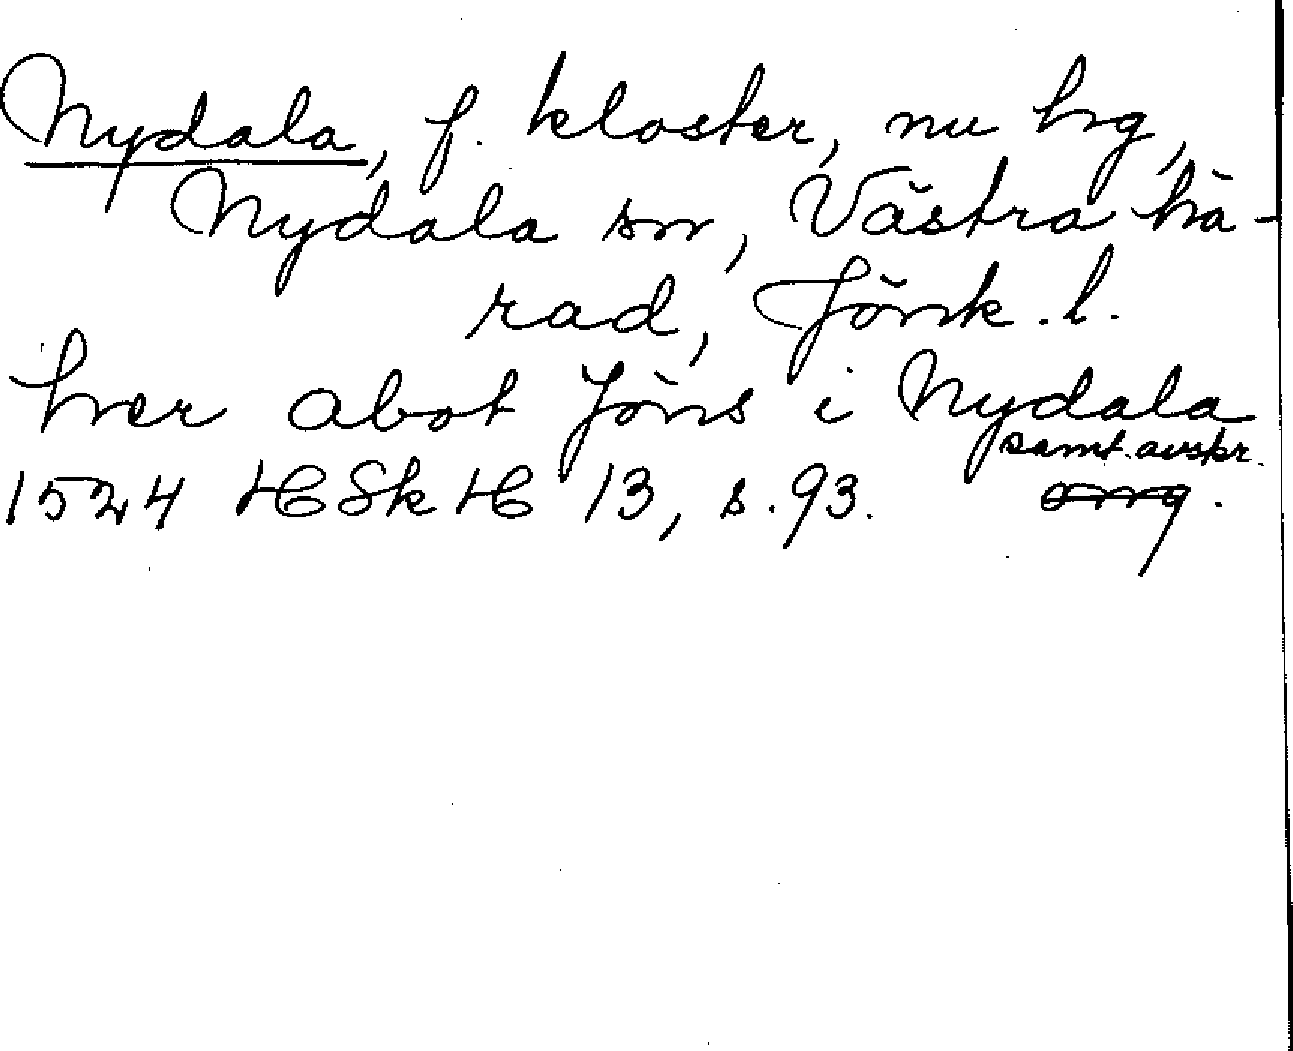 Nydala, f. kloster, nu hg,
Nydala sn, Västra hä-
rad, Jönk. l.
her abot Jöns i Nydala
samt. avskr.
1524 HSkH 13, s. 93. orig.